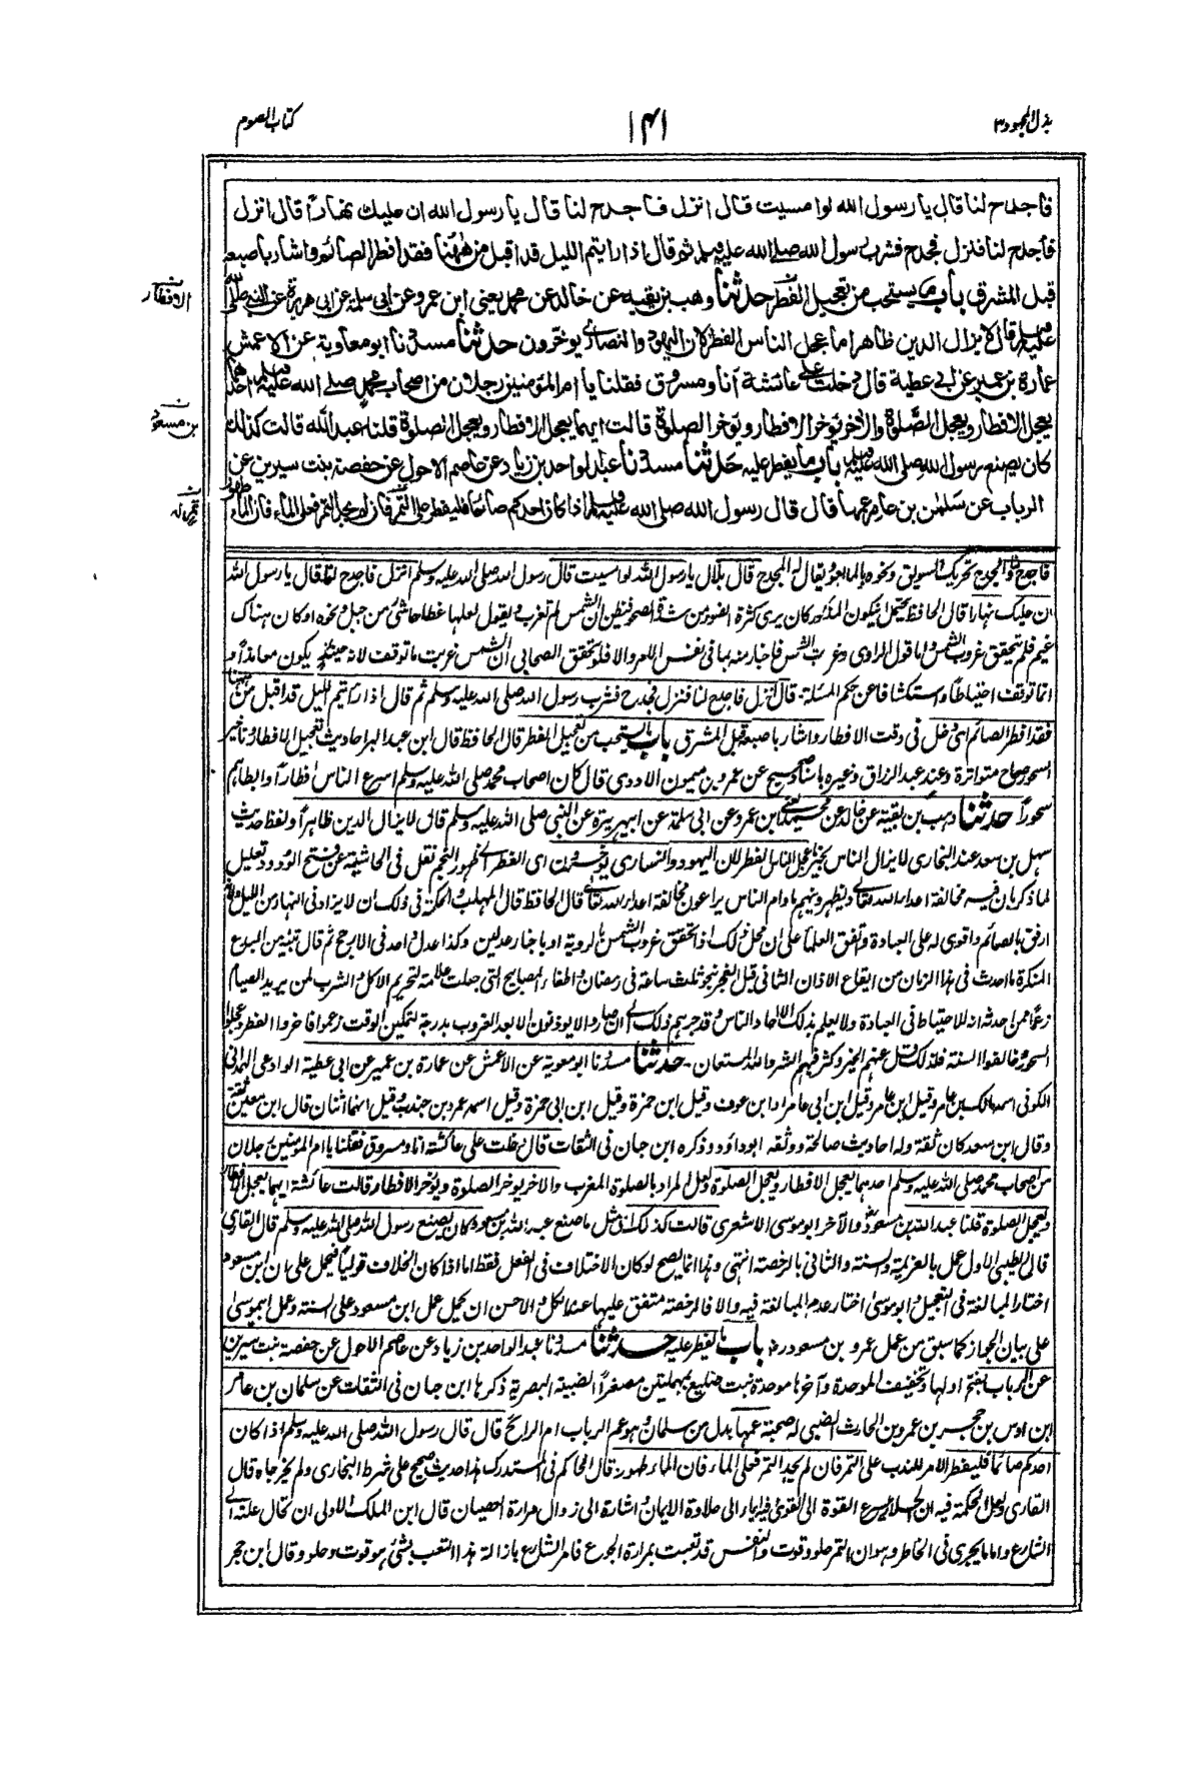 بذل المجهود ۳
۱۴۱
كتاب الصوم
فاجدح لنا قال يا رسول الله لو امسيت قال انزل فاجدح لنا قال يا رسول الله ان عليك نهاراً قال انزل
فاجدح لنا فنزل فجدح فشرب رسول الله صلى الله عليه وسلم ثم قال اذا رايتم الليل قد اقبل من ههنا فقد افطر الصائم واشار باصبعه
قبل المشرق باب ما يستحب من تعجيل الفطر حدثنا وهب بن بقية عن خالد عن محمد يعني ابن عمرو عن ابي سلمة عن ابي هريرة عن النبي صلى الله
عليه وسلم قال لا يزال الدين ظاهرا ما عجل الناس الفطر لان اليهود والنصارى يؤخرون حدثنا مسدد نا ابو معاوية عن الاعمش
عمارة بن عمير عن ابي عطية قال دخلت على عائشة انا ومسروق فقلنا يا ام المؤمنين رجلان من اصحاب محمد صلى الله عليه وسلم احدهما
يعجل الافطار ويعجل الصلوة والاخر يؤخر الافطار ويؤخر الصلوة قالت ايهما يعجل الافطار ويعجل الصلوة قلنا عبد الله قالت كذلك
كان يصنع رسول الله صلى الله عليه وسلم باب ما يفطر عليه حدثنا مسدد نا عبد الواحد بن زياد عن عاصم الاحول عن حفصة بنت سيرين عن
الرباب عن سلمٰن بن عامر عمها قال قال رسول الله صلى الله عليه وسلم اذا كان احدكم صائما فليفطر على التمر فان لم يجد التمر فعلى الماء فان الماء طهور
الافطار
بن مسعود
فاجدح والجدح تحريك السويق ونحوه بالماء بعود يقال له المجدح قال بلال يا رسول الله لو امسيت قال رسول الله صلى الله عليه وسلم انزل فاجدح لنا قال يا رسول الله
ان عليك نهارا قال الحافظ يحتمل ان يكون المذكور كان يرى كثرة الضوء من شدة الصحو فيظن ان الشمس لم تغرب ويقول لعلها غطاها شئ من جبل ونحوه او كان هناك
غيم فلم يتحقق غروب الشمس واما قول الراوى وغربت الشمس فاخبار منه بما فى نفس الامر والا فلو تحقق الصحابى ان الشمس غربت ما توقف لانه حينئذ يكون معاندا و
انما توقف احتياطا واستكشافا عن حكم المسئلة قال انزل فاجدح لنا فنزل فجدح فشرب رسول الله صلى الله عليه وسلم ثم قال اذا رايتم الليل قد اقبل من ههنا
فقد افطر الصائم اى دخل فى وقت الافطار واشار باصبعه قبل المشرق باب ما يستحب من تعجيل الفطر قال الحافظ قال ابن عبد البر احاديث تعجيل الافطار وتاخير
السحور صحاح متواترة وعند عبد الرزاق وغيره باسناد صحيح عن عمرو بن ميمون الاودى قال كان اصحاب محمد صلى الله عليه وسلم اسرع الناس افطارا وابطاهم
سحورا حدثنا وهب بن بقية عن خالد عن محمد يعنى ابن عمرو عن ابى سلمة عن ابى هريرة عن النبى صلى الله عليه وسلم قال لا يزال الدين ظاهرا ولفظ حديث
سهل بن سعد عند البخارى لا يزال الناس بخير ما عجل الناس الفطر لان اليهود والنصارى يؤخرون اى الفطر الى ظهور النجم نقل فى الحاشية عن فتح الودود تعليل
لما ذكر بان فيه مخالفة اعداء الله تعالى وليظهر دينهم ما دام الناس يراعون مخالفة اعداء الله تعالى قال الحافظ قال المهلب والحكمة فى ذلك ان لا يزاد فى النهار من الليل ولانه
ارفق بالصائم واقوى له على العبادة واتفق العلماء على ان محل ذلك اذا تحقق غروب الشمس بالروية او باخبار عدلين وكذا عدل واحد فى الارجح ثم قال تنبيه من البدع
المنكرة ما احدث فى هذا الزمان من ايقاع الاذان الثانى قبل الفجر بنحو ثلث ساعة فى رمضان واطفاء المصابيح التى جعلت علامة لتحريم الاكل والشرب لمن يريد الصيام
زعما ممن احدثه انه للاحتياط فى العبادة ولا يعلم بذلك الا آحاد الناس وقد جرهم ذلك الى ان صاروا لا يوذنون الا بعد الغروب بدرجة لتمكين الوقت زعموا فاخروا الفطر وعجلوا
السحور فخالفوا السنة فلذلك قل عنهم الخير وكثر فيهم الشر والله المستعان - حدثنا مسدد نا ابو معوية عن الاعمش عن عمارة بن عمير عن ابى عطية الوادعى الهمدانى
الكوفى اسمه مالك بن عامر وقيل ابن ابى عامر وقيل ابن عوف وقيل ابن حمزة وقيل ابن ابى حمزة وقيل اسمه عمرو بن جندب وقيل انهما اثنان قال ابن معين ثقة
وقال ابن سعد كان ثقة وله احاديث صالحة ووثقه ابو داود وذكره ابن حبان فى الثقات قال دخلت على عائشة انا ومسروق فقلنا يا ام المؤمنين رجلان
من اصحاب محمد صلى الله عليه وسلم احدهما يعجل الافطار ويعجل الصلوة ولعل المراد بالصلوة المغرب والاخر يوخر الصلوة ويوخر الافطار قالت عائشة ايهما يعجل الافطار
ويعجل الصلوة قلنا عبد الله بن مسعود والآخر ابو موسى الاشعرى قالت كذلك اى مثل ما صنع عبد الله بن مسعود كان يصنع رسول الله صلى الله عليه وسلم قال القارى
قال الطيبى الاول عمل بالعزيمة والسنة والثانى بالرخصة انتهى وهذا انما يصح لو كان الاختلاف فى الفعل فقط اما اذا كان الخلاف قوليا فيحمل على ان ابن مسعود
اختار المبالغة فى التعجيل وابو موسى اختار عدم المبالغة فيه والا فالرخصة متفق عليها عند الكل والاحسن ان يحمل عمل ابن مسعود على السنة وعمل ابى موسى
على بيان الجواز كما سبق من عمل عمر و بن مسعود رض باب ما يفطر عليه حدثنا مسدد نا عبد الواحد بن زياد عن عاصم الاحول عن حفصة بنت سيرين
عن الرباب بفتح اولها وتخفيف الموحدة وآخرها موحدة بنت صليع بمهملتين مصغرا الضبية البصرية ذكرها ابن حبان فى الثقات عن سلمان بن عامر
ابن اوس بن حجر بن عمرو بن الحارث الضبى له صحبة عمها بدل من سلمان وهو عم الرباب ام الرائح قال قال رسول الله صلى الله عليه وسلم اذا كان
احدكم صائما فليفطر الامر للندب على التمر فان لم يجد التمر فعلى الماء فان الماء طهور قال الحاكم فى المستدرك هذا حديث صحيح على شرط البخارى ولم يخرجاه قال
القارى ولعل الحكمة فيه ان الحلا يسرع القوة الى القوى وفيه ايماء الى حلاوة الايمان واشارة الى زوال مرارة العصيان قال ابن الملك الاولى ان تحال علته الى
الشارع واما ما يجرى فى الخاطر وهو ان التمر حلو وقوت والنفس قد تعبت بمرارة الجوع فامر الشارع بازالة هذا التعب بشئ هو قوت وحلو وقال ابن حجر